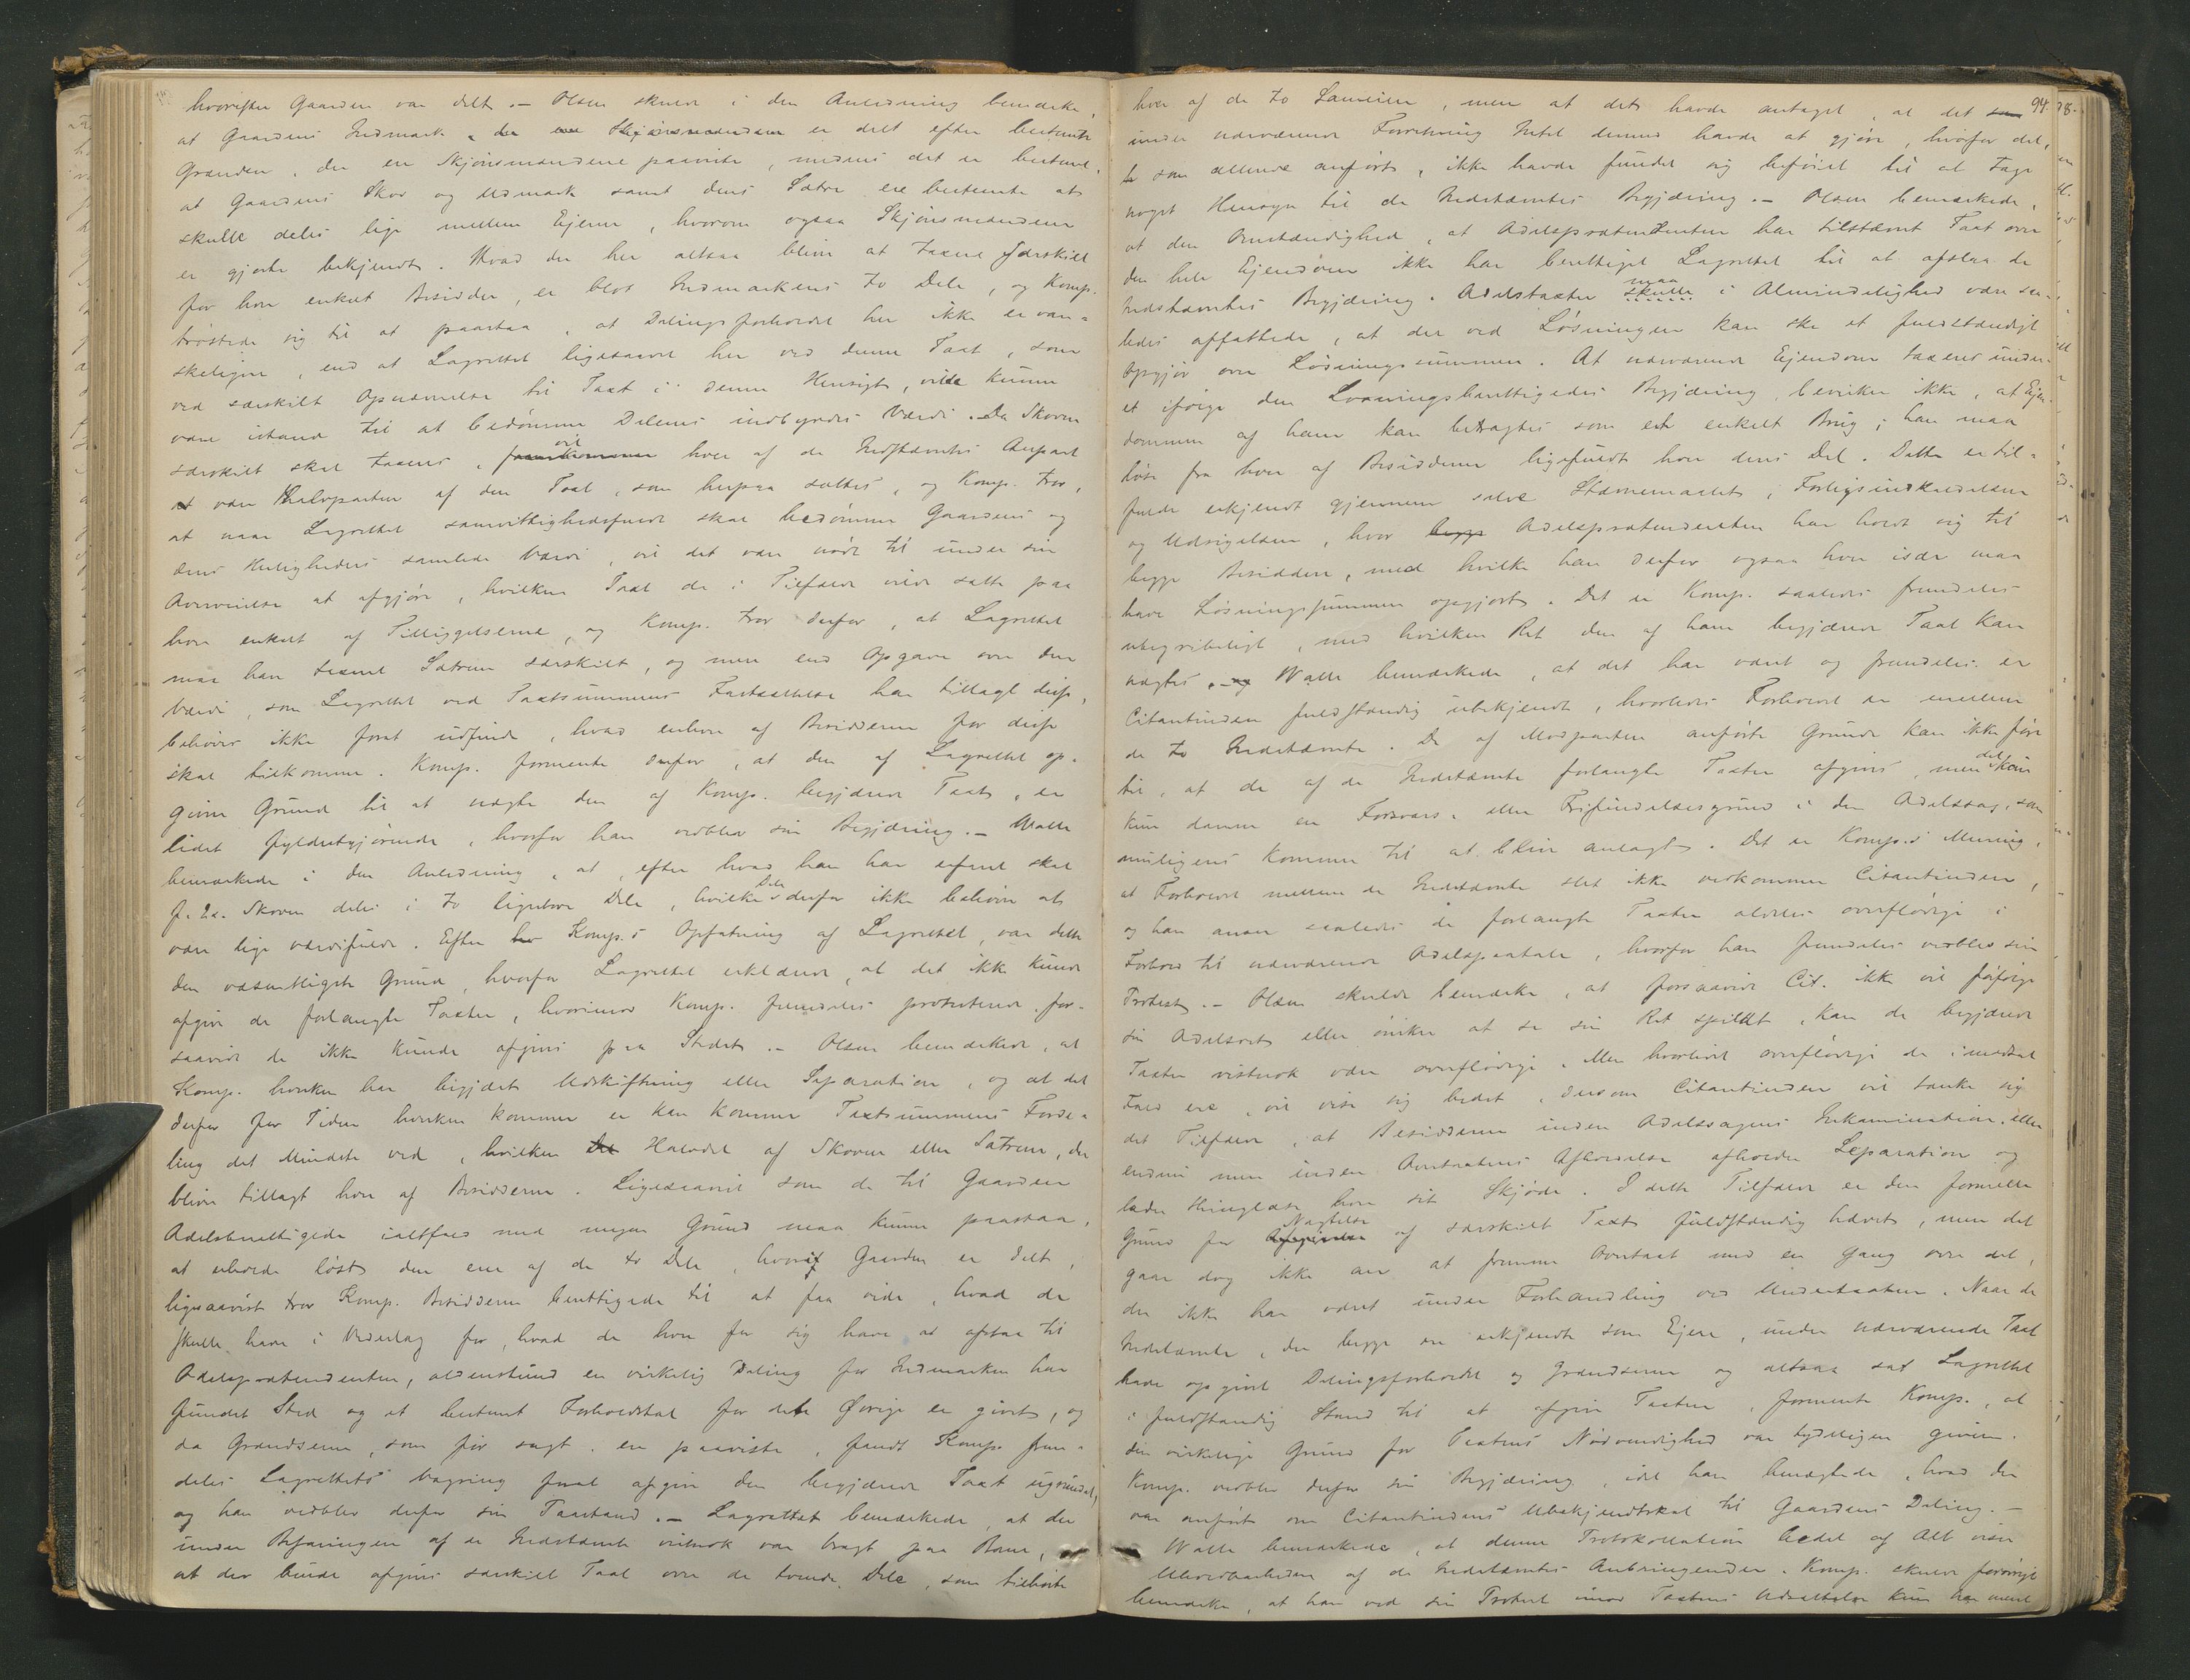 hvorefter Gaarden var delt. — Olsen skulde i den Anledning bemærke,
at Gaardens Indmark, der ere Skjönsmændene er delt efter bestemte
Grændser, der ere Skjönsmændene paaviste, medens det er bestemt,
at Gaardens Skov og Udmark samt dens Sætre ere bestemte at
skulle deles lige mellem Ejerne, hvorom ogsaa Skjönsmændene
er gjorte bekjendt. Hvad der her altsaa bliver at taxere særskilt
for hver enkelt Besidder, er blot Indmarkens to Dele, og Komp.
tröstede sig til at paastaa, at Delingsforholdet her ikke er van-
skeligere, end at Lagrettet ligesaavel her ved denne Taxt, som
ved særskilt Opnævnelse til Taxt i denne Hensigt, vilde kunne
være istand til at bedömme Delenes indbyrdes Værdi. Da Skoven
særskilt skal taxeres, vil hver af de Indstævntes Anpart
være Halvparten af den Taxt, som herpaa sættes, og Komp. tror,
at naar Lagrettet samvittighedsfuldt skal bedömme Gaardens og
dens Herligheders samlede Værdi, vil det være nödt til under sin
Overveielse at afgjöre, hvilken Taxt de i Tilfælde vilde sætte paa
hver enkelt af Tilliggelserne, og Komp. tror derfor, at Lagrettet
maa have taxeret Sætrene særskilt, og mere end Opgave over den
Værdi, som Lagrettet ved Taxtsummens Fastsættelse har tillagt disse,
behöves ikke forat udfinde, hvad enhver af Besidderne for disse
skal tilkomme. Komp. formente derfor, at den af Lagrettet op-
givne Grund til at nægte den af Komp. begjærede Taxt, er
lidet fyldestgjörende, hvorfor han vedblev sin Begjæring. — Walle
bemærkede i den Anledning, at efter hvad han har erfaret skal
f. Ex. Skoven deles i to ligestore Dele, hvilke Dele derfor ikke behöver at
være lige værdifulde. Efter Komp.s Opfatning af Lagrettet, var dette
den væsentligste Grund, hvorfor Lagrettet erklærede, at det ikke kunde
afgive de forlangte Taxter, hvorimod Komp. fremdeles protesterede, for-
saavidt de ikke kunde afgives paa Stedet. — Olsen bemærkede, at
Komp. hverken har begjæret Udskiftning eller Separation, og at det
derfor for Tiden hverken kommer er kan komme Taxtsummens Forde-
ling det Mindste ved, hvilken Halvdel af Skoven eller Sætrene, der
bliver tillagt hver af Besidderne. Ligesaavel som de til Gaarden
Odelsberettigede ialtfald med megen Grund maa kunne paastaa,
at erholde löst den ene af de to Dele, hvori Gaarden er delt,
ligesaavist tror Komp. Besidderne berettigede til at faa vide, hvad de
skulle have i Vederlag for, hvad de hver for sig have at afstaa til
Odelsprætendenten, aldenstund en virkelig Deling for Indmarken har
fundet Sted og et bestemt Forholdstal for det Övrige er givet, og
da Grændserne, som för sagt, ere paaviste, fandt Komp. frem-
deles Lagrettets Vægring forat afgive den begjærede Taxt ugrundet,
og han vedblev derfor sin Paastand. — Lagrettet bemærkede, at der
under Befaringen af de Indstævnte vistnok var bragt paa Bane,
at der burde afgives særskilt Taxt over de tvende Dele, som tilhörte
94.
hver af de to Lauritser, men at det havde antaget, at det
under nærværende Forretning Intet dermed havde at gjöre, hvorfor det,
som allerede anfört, ikke havde fundet sig beföiet til at tage
noget Hensyn til de Indstævntes Begjæring. — Olsen bemærkede,
at den Omstændighed, at Odelsprætendenten har tilstævnt Taxt over
den hele Ejendom ikke har berettiget Lagrettet til at afslaa de
Indstævntes Begjæring. Odelstaxter skulde maa i Almindelighed være saa-
ledes affattede, at der ved Lösningen kan ske et fuldstændigt
Opgjör over Lösningssummen. At nærværende Ejendom taxeres under
et ifölge den Lovningsberettigedes Begjæring, bevirker ikke, at Ejen-
dommen af ham kan betragtes som et enkelt Brug; han maa
löse fra hver af Besidderne ligefuldt hver dens Del. Dette er til-
fulde erkjendt gjennem selve Stævnemaalet, Forligsindkaldelsen
og Udsigelsen, hvor Odelsprætendenten har holdt sig til
begge Besiddere, med hvilke han derfor ogsaa hver især maa
have Lösningssummen opgjort. Det er Komp. saaledes fremdeles
ubegribeligt, med hvilken Ret den af ham begjærede Taxt kan
nægtes. — Walle bemærkede, at det har været og fremdeles er
Citantinden fuldstændig ubekjendt, hvorledes Forholdet er mellem
de to Indstævnte. De af Modparten anförte Grunde kan ikke före
til, at de af de Indstævnte forlangte Taxter afgives, men det kan
kun danne en Forsvars- eller Frifindelsesgrund i den Odelssag, som
muligens kommer til at blive anlagt. Det er Komp.s Mening,
at Forholdet mellem de Indstævnte slet ikke vedkommer Citantinden,
og han anser saaledes de forlangte Taxter aldeles overflödige i
Forhold til nærværende Odelspaatale, hvorfor han fremdeles vedblev sin
Protest. — Olsen skulde bemærke, at forsaavidt Cit. ikke vil forfölge
sin Odelsret eller önsker at se sin Ret spildt, kan de begjærede
Taxter vistnok være overflödige. Men hvorvidt overflödige de i modsat
Fald ere, vil vise sig bedst, dersom Citantinden vil tænke sig
det Tilfælde, at Besidderne inden Odelssagens Inkamination, eller
endnu mere inden Overtaxtens Afholdelse afholder Separation og
lader thinglæse hver sit Skjöde. I dette Tilfælde er den formelle
Grund for Nægtelse af særskilt Taxt fuldstændig hævet, men det
gaar dog ikke an at fremme Overtaxt med en Gang over det,
der ikke har været under Forhandling ved Undertaxten. Naar de
Indstævnte, der begge ere erkjendte som Ejere, under nærværende Taxt
have opgivet Delingsforholdet og Grændserne og altsaa sat Lagrettet
i fuldstændig Stand til at afgive Taxten, formente Komp., at
den virkelige Grund for Taxtens Nödvendighed var tydeligen given.
Komp. vedblev derfor sin Begjæring, idet han benægtede, hvad der
var anfört om Citantindens Ubekjendtskab til Gaardens Deling. —
Walle bemærkede, at denne Protokollation bedst af Alt viser
Uholdbarheden af de Indstævntes Anbringender. Komp. skulde forövrigt
bemærke, at han ved sin Protest imod Taxtens Udsættelse kun har ment